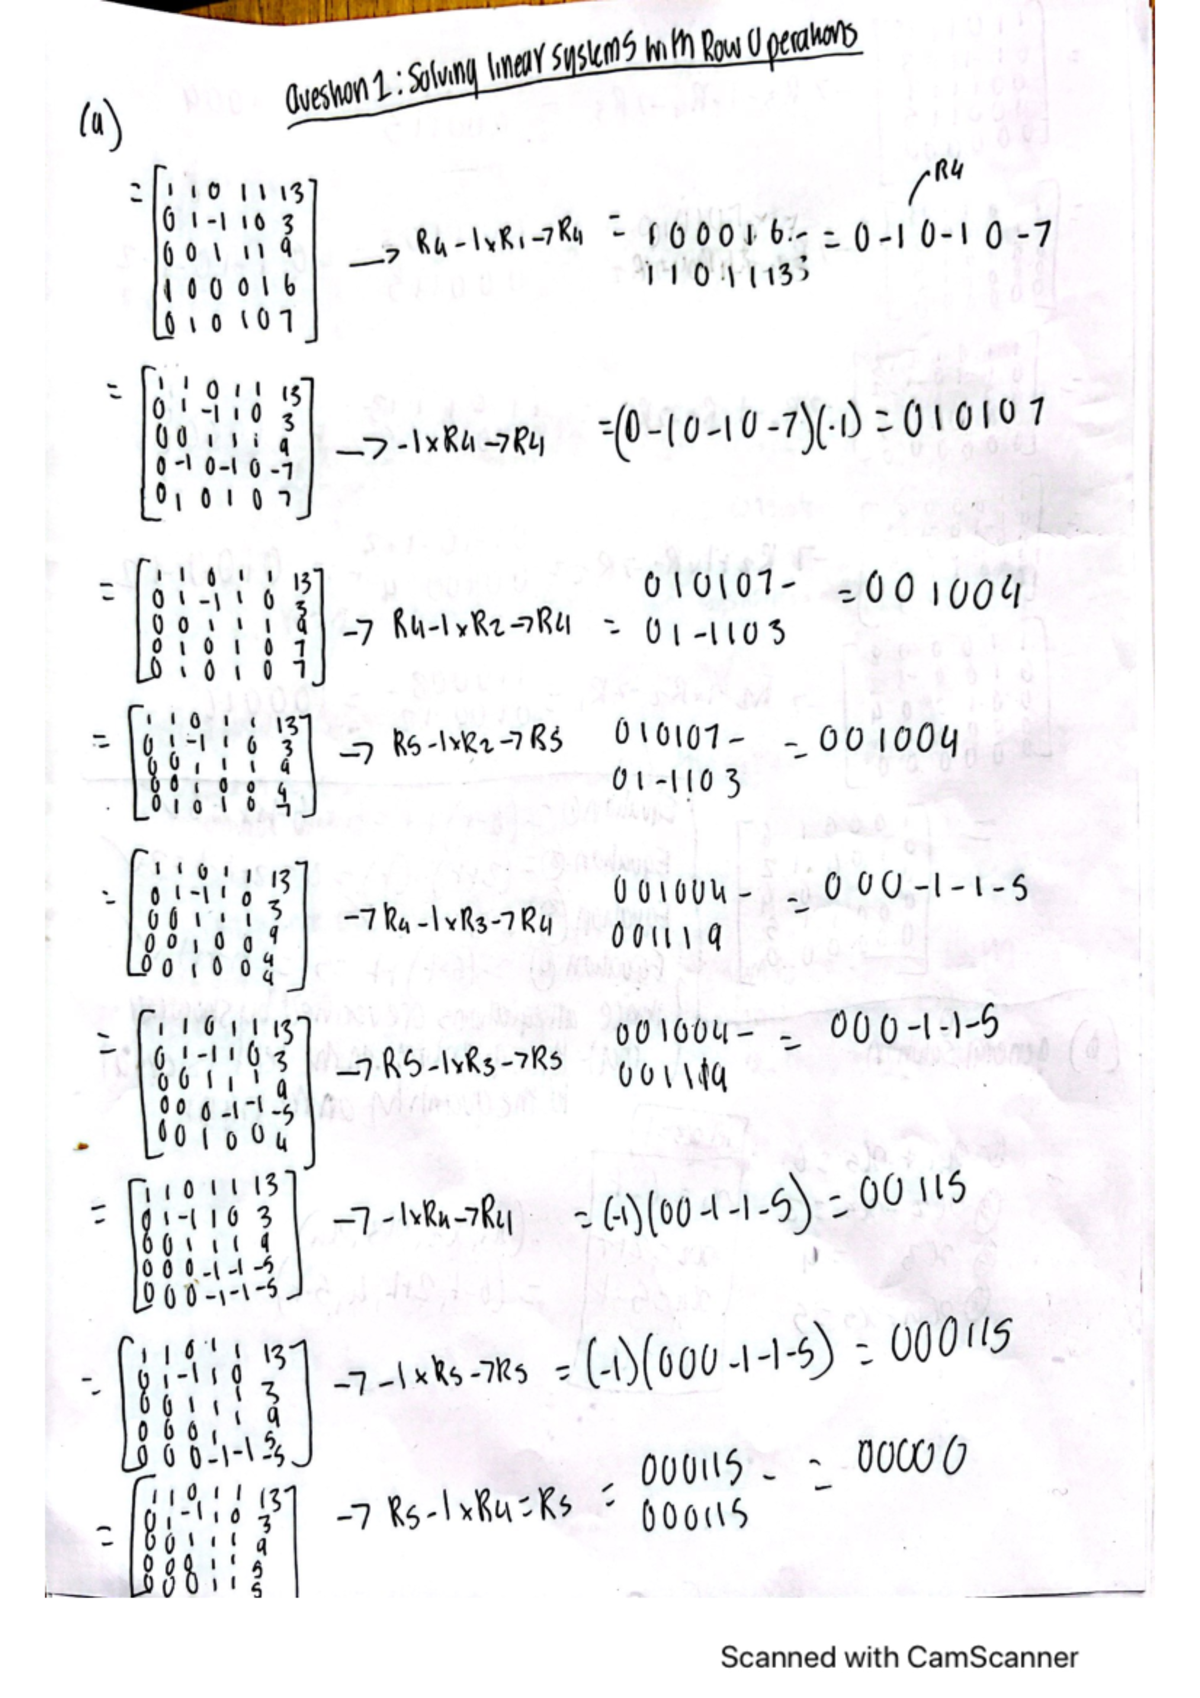 Question 1: Solving linear systems with Row Operations
(a)
= [ 1 1 0 1 1 13
0 1 -1 1 0 3
0 0 1 1 1 9
1 0 0 0 1 6
0 1 0 1 0 7 ]
→ R4 - 1xR1 → R4 = 100016- = 0 -1 0 -1 0 -7
1 1 0 1 1 13
R4
= [ 1 1 0 1 1 13
0 1 -1 1 0 3
0 0 1 1 1 9
0 -1 0 -1 0 -7
0 1 0 1 0 7 ]
→ -1 x R4 → R4 = (0 -1 0 -1 0 -7)(-1) = 0 1 0 1 0 7
= [ 1 1 0 1 1 13
0 1 -1 1 0 3
0 0 1 1 1 9
0 1 0 1 0 7
0 1 0 1 0 7 ]
→ R4 - 1xR2 → R4 = 010107- = 001004
01-1103
= [ 1 1 0 1 1 13
0 1 -1 1 0 3
0 0 1 1 1 9
0 0 1 0 0 4
0 1 0 1 0 7 ]
→ R5 - 1xR2 → R5 010107- = 001004
01-1103
= [ 1 1 0 1 1 13
0 1 -1 1 0 3
0 0 1 1 1 9
0 0 1 0 0 4
0 0 1 0 0 4 ]
→ R4 - 1xR3 → R4 001004- = 000-1-1-5
001119
= [ 1 1 0 1 1 13
0 1 -1 1 0 3
0 0 1 1 1 9
0 0 0 -1 -1 -5
0 0 1 0 0 4 ]
→ R5 - 1xR3 → R5 001004- = 000-1-1-5
001119
= [ 1 1 0 1 1 13
0 1 -1 1 0 3
0 0 1 1 1 9
0 0 0 -1 -1 -5
0 0 0 -1 -1 -5 ]
→ -1xR4 → R4 = (-1)(00-1-1-5) = 00115
= [ 1 1 0 1 1 13
0 1 -1 1 0 3
0 0 1 1 1 9
0 0 0 1 1 5
0 0 0 -1 -1 -5 ]
→ -1xR5 → R5 = (-1)(000-1-1-5) = 000115
= [ 1 1 0 1 1 13
0 1 -1 1 0 3
0 0 1 1 1 9
0 0 0 1 1 5
0 0 0 1 1 5
→ R5 - 1xR4 = R5 = 000115 - = 00000
000115
Scanned with CamScanner